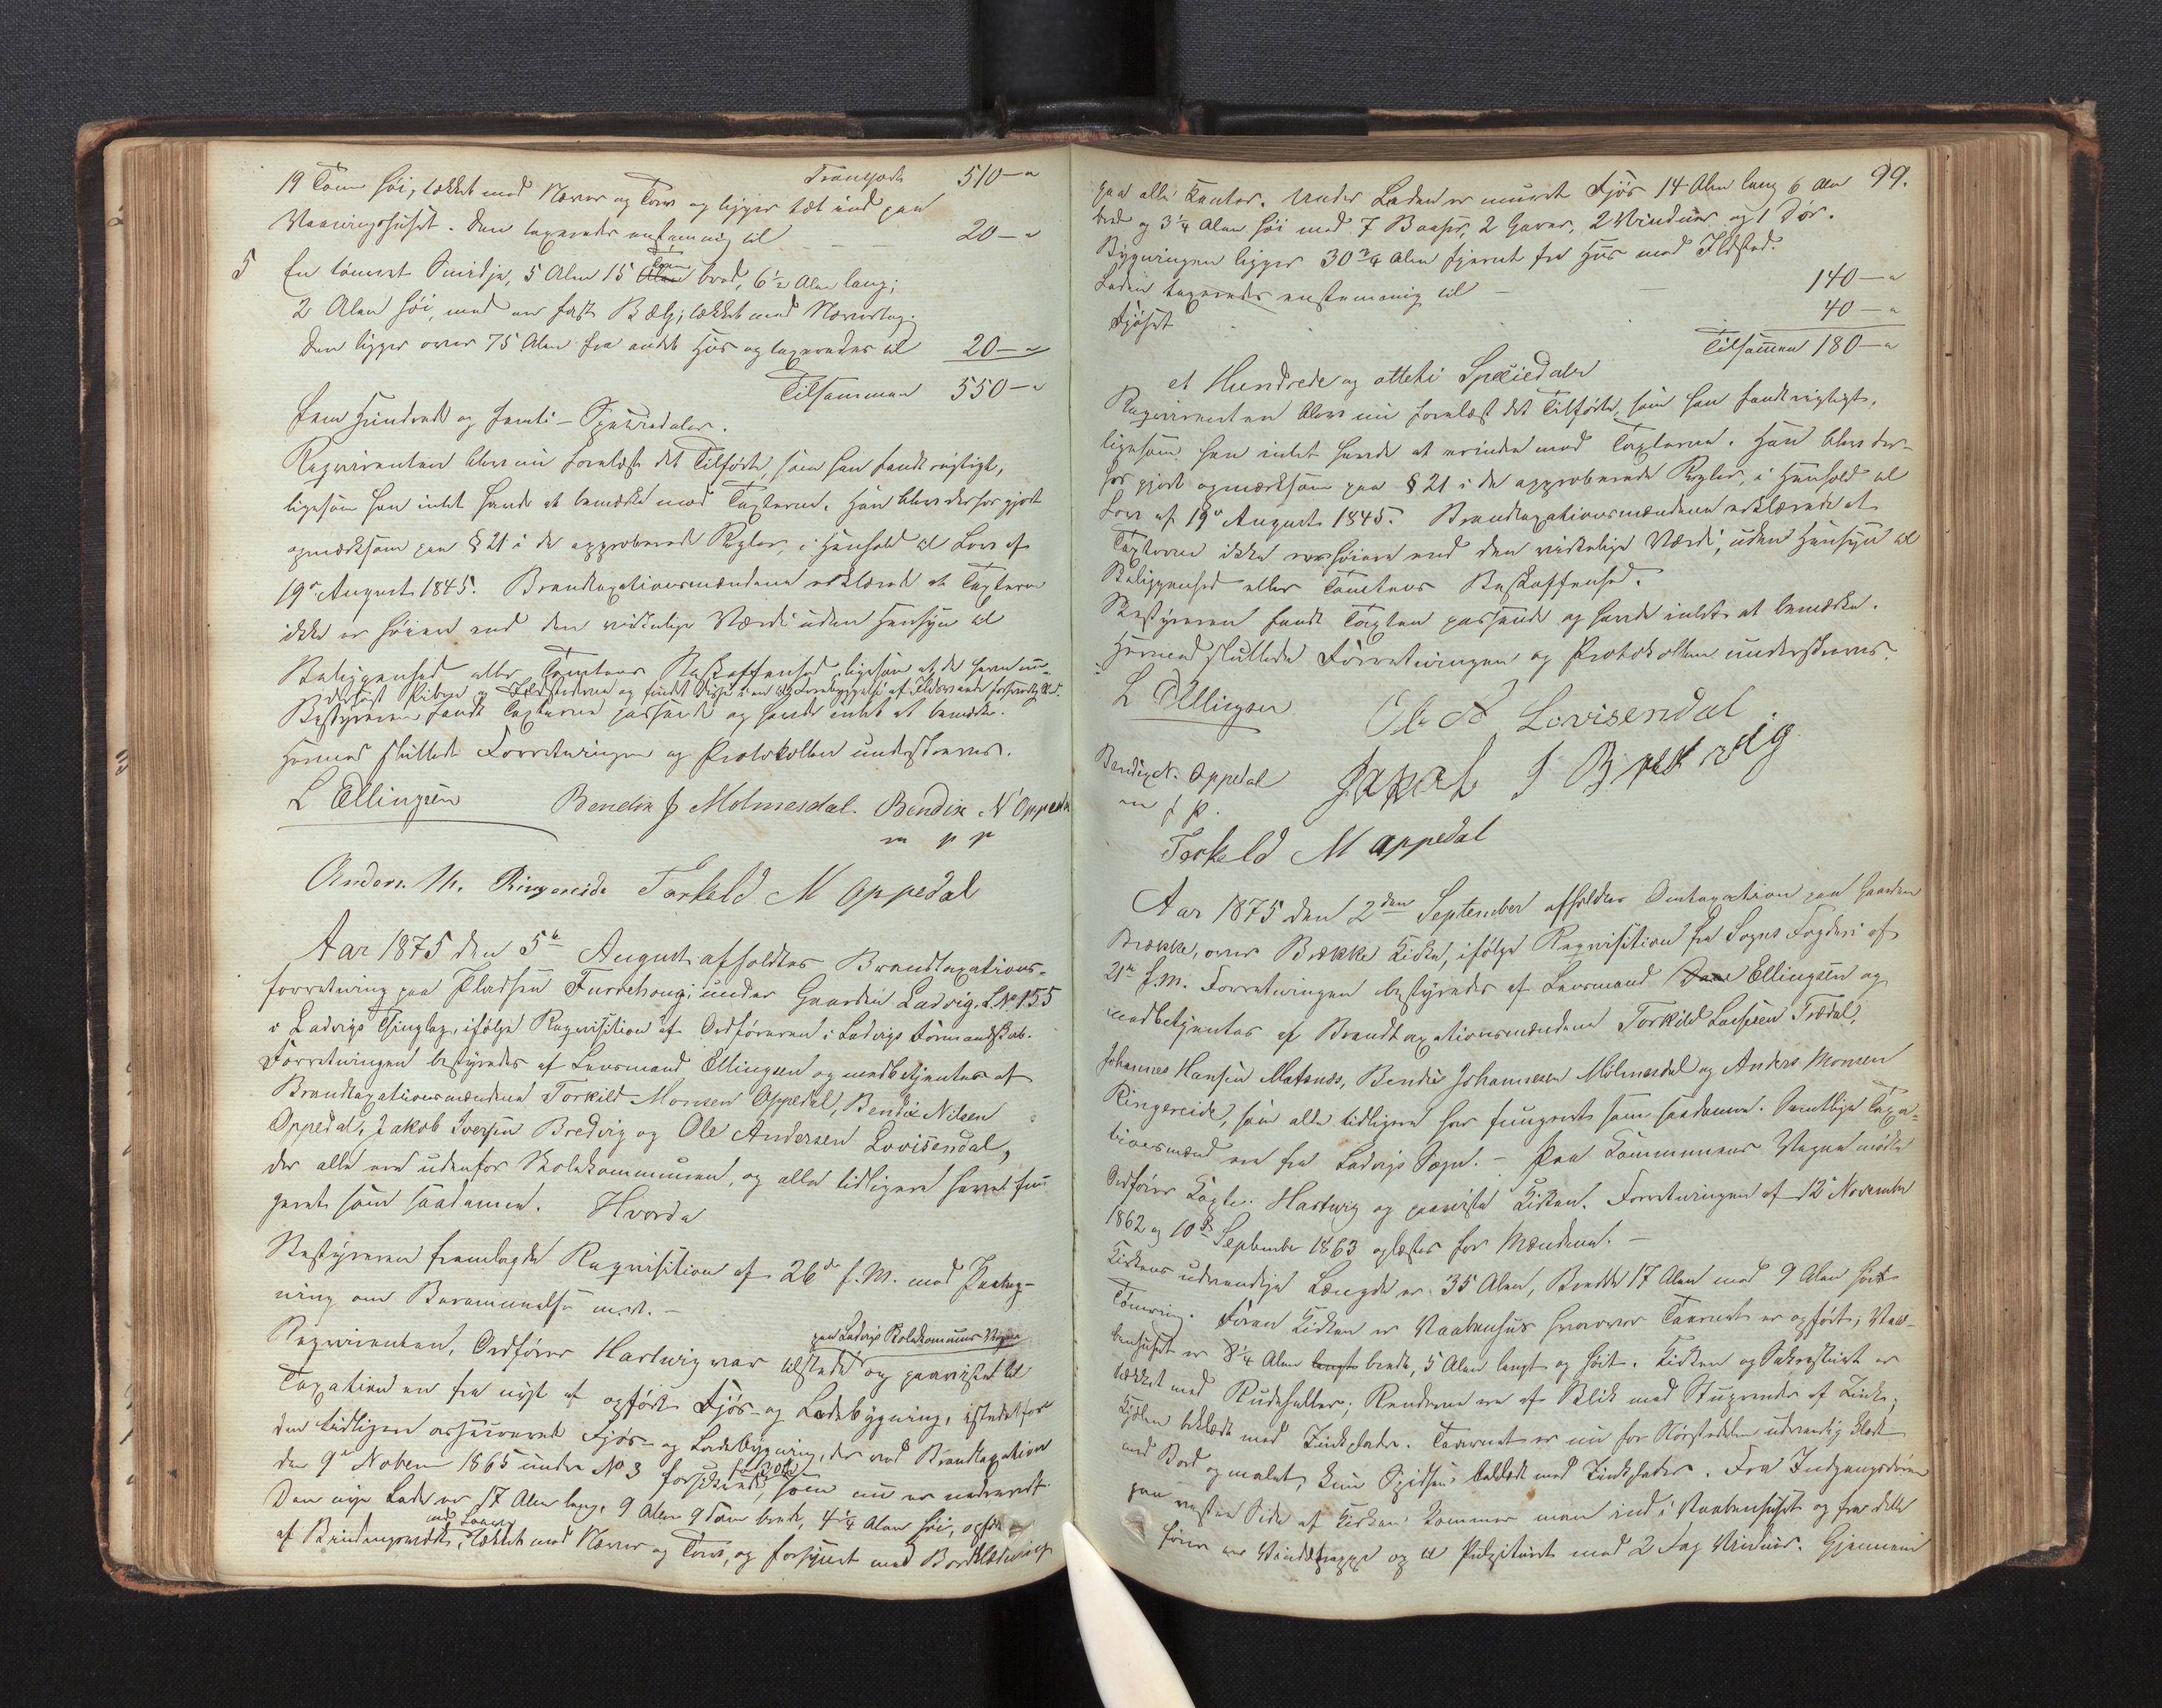 Transport 510 – "
19 Tom høi, tækket med Næver og Torv og ligger tæt ind paa
Vaaningshuset. Den taxeredes enstemmig til – – 20 – "
5 En tømret Smidje, 5 Alen 15 Tom bred, 6½ Alen lang;
2 Alen høi, med en fast Bælg; tækket med Nævertag.
Den ligger over 75 Alen fra andet Huus og taxeredes til 20 – "
Tilsammen 550 – "
fem Hundrede og femti – Speciedaler.
Reqvirenten blev nu forelæst det Tilførte, som han fandt rigtigt,
ligesom han intet havde at bemærke mod Taxterne. Han blev derfor gjort
opmærksom paa § 21 i de approberede Regler, i Henhold til Lov af
19de August 1845. Brandtaxationsmændene erklærede at Taxterne
ikke er høiere end den virkelige Værdi uden Hensyn til
Beliggenhed eller Tomtens Beskaffenhed, ligesom at de have un-
dersøgt Piber og Ildstederne og fundet disse i en til Forebyggelse af Ildsvaade forsvarlig Stand.
Bestyreren fandt Taxterne passende og havde intet at bemærke.
Hermed sluttet Forretningen og Protokollen underskreves.
L Ellingsen Bendix J Molmesdal. Bendix N Oppedal
m p p
Anders M. Ringereide Torkeld M Oppedal
Aar 1875 den 5te August afholdtes Brandtaxations-
forretning paa Pladsen Furrehaug, under Gaarden Ladvig, L. No 155
i Ladvigs Thinglag, ifølge Reqvisition af Ordføreren i Ladvigs Formandskab.
Forretningen bestyredes af Lensmand Ellingsen og medbetjentes af
Brandtaxationsmændene Torkild Monsen Oppedal, Bendix Nilsen
Oppedal, Jakob Iversen Bredvig og Ole Andersen Lovisendal,
der alle ere udenfor Skolekommunen, og alle tidligere havet fun-
geret som saadanne. Hvorda
Bestyreren fremlagde Reqvisition af 26de f. M. med Paateg-
ning om Berammelse m. v. –
paa Ladvigs Skolekommunes Vegne
Reqvirenten, Ordfører Hartwig var tilstede og paaviste til
Taxation en fra nyt af opført Fjøs- og Ladebygning, istedetfor
den tidligere assurerede Fjøs- og Ladebygning, der ved Brandtaxation
den 9de Novem 1865 under No 3 forsikret, som nu er nedrevet.
Den nye Lade er 17 Alen lang, 9 Alen 9 Tom bred, 4¼ Alen høi, opført
med Laaver
af Bindingsværk, tækket med Næver og Torv, og forsynet med Bordklædning
99.
paa alle Kanter. Under Laden er muret Fjøs 14 Alen lang 6 Alen
bred og 3¼ Alen høi med 7 Baaser, 2 Garer, 2 Vinduer og 1 Dør.
Bygningen ligger 30¾ Alen fjernet fra Huus med Ildsted.
Laden taxeredes enstemmig til – – 140 – "
Fjøset 40 – "
Tilsammen 180 – "
et Hundrede og otteti Speciedaler
Reqvirenten blev nu forelæst det Tilførte, som han fandt rigtigt,
ligesom han intet havde at erindre mod Taxterne. Han blev der-
for gjort opmærksom paa § 21 i de approberede Regler, i Henhold til
Lov af 19de August 1845. Brandtaxationsmændene erklærede at
Taxterne ikke er høiere end den virkelige Værdi, uden Hensyn til
Beliggenhed eller Tomtens Beskaffenhed.
Bestyreren fandt Taxten passende og havde intet at bemærke.
Hermed sluttedes Forretningen og Protokollen underskreves.
L Ellingsen Ole A Lovisendal.
Bendix N. Oppedal Jakob I Bredvig
m p p.
Torkeld M Oppedal
Aar 1875 den 2den September afholdtes Omtaxation paa Gaarden
Brække, over Brække Kirke, ifølge Reqvisition fra Sogns Fogderi af
21de f. M. Forretningen bestyredes af Lensmand Ellingsen og
medbetjentes af Brandtaxationsmændene Torkild Larssen Trædal,
Johannes Hansen Matsnæs, Bendix Johannesen Molmesdal og Anders Monsen
Ringereide, som alle tidligere har fungeret som saadanne. Samtlige Taxa-
tionsmænd ere fra Ladvigs Sogn. – Paa Kommunens Vegne mødte
Ordfører Hartwig og paaviste Kirken. Forretningen af 12 November
1862 og 10de September 1863 oplæstes for Mændene. –
Kirkens udvendige Længde er 35 Alen, Bredde 17 Alen med 9 Alen høit
Tømring. Foran Kirken er Vaabenhus hvorover Taarnet er opført; Vaa-
benhuset er 8¼ Alen bredt, 5 Alen langt og høit. Kirken og Sakrastiet er
tækket med Rudeheller; Renderne ere af Blik med Stuprender af Zink;
Kjølen beklædt med Zinkplader. Taarnet er nu for Størstedelen udvendig klædt
med Bord og malet, kun Spidsen beklædt med Zinkplader. Fra Indgangsdøren
paa vestre Side af Kirken kommer man ind i Vaabenhuset og fra dette
fører en Vindeltrappe op til Pulpituret med 2 Fag Vinduer. Gjennem